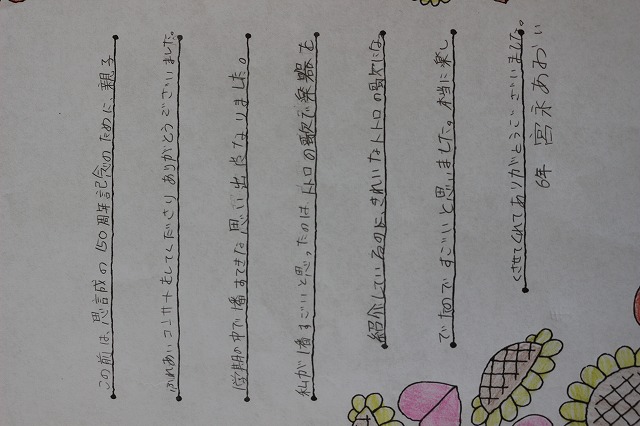 この前は、思誠の150周年記念のために、親子
ふれあいコンサートをしてくださりありがとうございました。
1学期の中で1番すてきな思い出になりました。
私が1番すごいと思ったのは、トトロの歌で楽器を
紹介しているのに、きれいなトトロの歌にな
でたのですごいと思いました。本当に楽し
くさせてくれてありがとうございました。
6年 宮永あおい